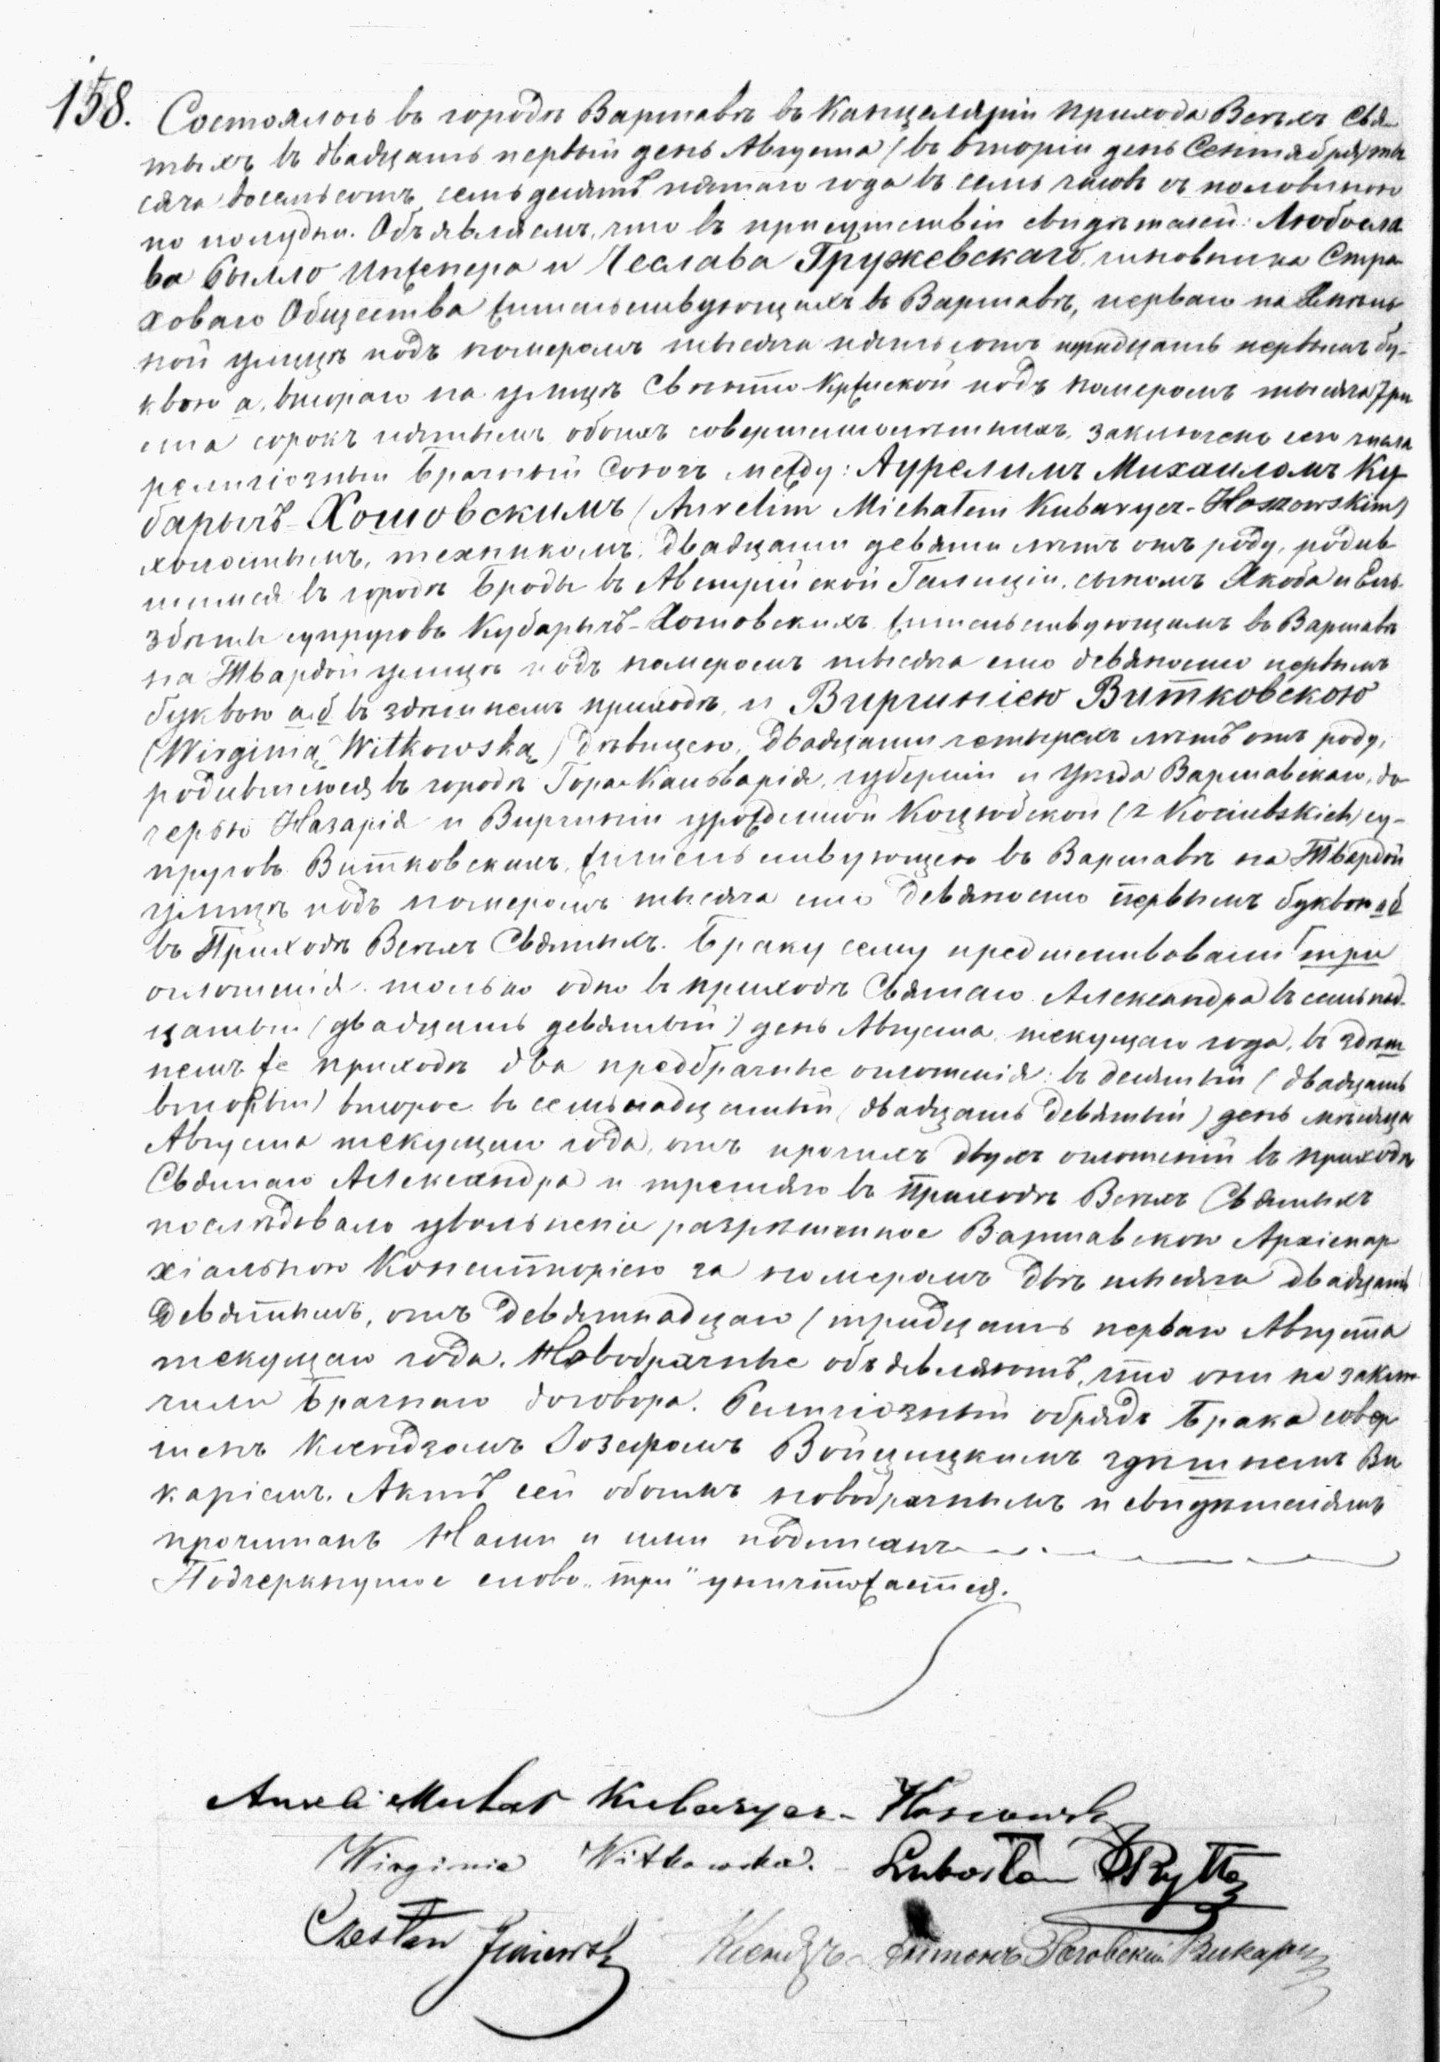 158. Состоялось въ городѣ Варшавѣ въ Канцеляріи прихода Всѣхъ Свя-
тыхъ въ двадцать первый день Августа (въ вторый день Сентября) ты
сяча восемьсотъ семьдесятъ пятаго года въ семь часовъ съ половиною
по полудни. Объявляемъ, что въ присутствіи свидѣтелей: Любосла
ва Рытло Инженера и Чеслава Гружевскаго, чиновника Стра
ховаго Общества жительствующихъ въ Варшавѣ, перваго на
ной улицѣ подъ номеромъ тысяча пятьсотъ тридцать первымъ бу-
квою а, втораго на улицѣ Свѣнто-Кржиской подъ номеромъ тысяча три
ста сорокъ пятымъ, обоихъ совершеннолѣтнихъ, заключенъ сего числа
религіозный брачный союзъ между: Аурелимъ Михаиломъ Ку
барычъ-Хошовскимъ (Aurelim Michałem Kubarycz-Hoszowskim)
холостымъ, техникомъ, двадцати девяти лѣтъ отъ роду, родив
шимся въ городѣ Броды въ Австрійской Галиціи, сыномъ Якоба и Ель
збѣты супруговъ Кубарычъ-Хошовскихъ жительствующимъ въ Варшавѣ
на Твардой улицѣ подъ номеромъ тысяча сто девяносто первымъ
буквою а.б въ здѣшнемъ приходѣ, и Виргиніею Витковскою
(Wirginią Witkowską) дѣвицею, двадцати четырехъ лѣтъ отъ роду,
родившеюся въ городѣ Гора-Кальварія, губерніи и Уѣзда Варшавскаго, до
черью Назарія и Виргиніи урожденной Коцюбской (z Kociubskich) су-
пруговъ Витковскихъ, жительствующею въ Варшавѣ на Твардой
улицѣ подъ номеромъ тысяча сто девяносто первымъ буквою а.б
въ Приходѣ Всѣхъ Святыхъ. Браку сему предшествовали три
оглашенія только одно въ приходѣ Святаго Александра въ семьнад
цатый (двадцать девятый) день Августа текущаго года, въ здѣш
немъ же приходѣ два предбрачные оглашенія: въ десятый (двадцать
вторый) второе въ семьнадцатый (двадцать девятый) день мѣсяца
Августа текущаго года, отъ прочихъ двухъ оглашеній въ приходѣ
Святаго Александра и третяго въ Приходѣ Всѣхъ Святыхъ
послѣдовало увольненіе разрѣшенное Варшавскою Архіепар
хіальною Консисторіею за номеромъ двѣ тысяча двадцать
девятымъ, отъ девятнадцаго (тридцать перваго Августа
текущаго года. Новобрачные объявляютъ, что они не заклю
чили брачнаго договора. Религіозный обрядъ брака совер
шенъ Ксендзомъ Іозефомъ Войцицкимъ здѣшнемъ Ви
каріемъ. Актъ сей обоимъ новобрачнымъ и свидѣтелямъ
прочитанъ Нами и ими подписанъ
Подчеркнутое слово „три" уничтожается.
Aureli Michał Kubarycz-Hoszowski
Wirginia Witkowska. Lubosław Rytło
Czesław Ксендзъ Антонъ Роговскій Викарій